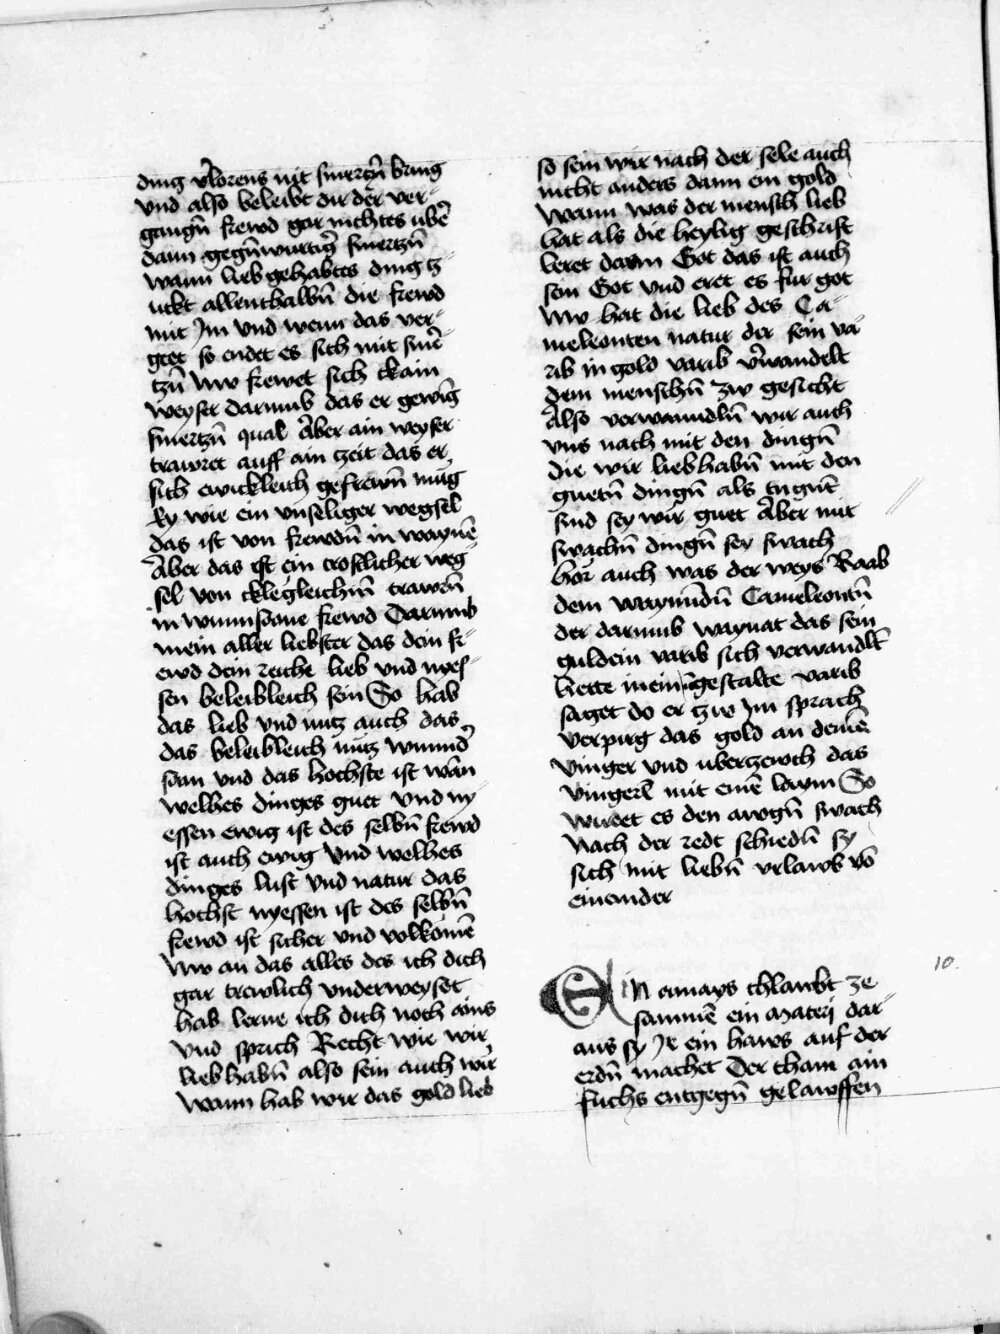 ding v̓lorens nit smertzn̄ bring
vnd also beleibt dir der ver-
gangn̄ frewd gar nichtes vbē
dann gegn̄wurtig̓ smertzn̄
wann lieb gehabtes ding tz-
uckt allenthalbn̄ die frewd
mit Im vnd wenn das ver-
geet so endet es sich mit smē-
tzn̄ Nw frewet sich ckain
weyser darumb das er gewin̄
smertzn̄ qual Aber ain weyser
trawret auff ain tzeit das er
sich ewickleich gefrewn̄ mug
Ey wie ein vnseliger wegsel
das ist von frewdn̄ in waynē
Aber das ist ein trostlicher weg-
sel von cklegleichm̄ trawrn̄
in wunnsame frewd Darumb
mein aller liebster das dein fr-
ewd dein reiche lieb vnd nyes-
sen beleibleich sein So hab
das lieb vnd nutz auch das
das beleibleich nutz wunnd̓
san vnd das hochste ist wan̄
welhes dinges guet vnd ny-
essen ewig ist des selbn̄ frewd
ist auch ewig vnd welhes
dinges lust vnd natur das
hochst nyessen ist des selbn̄
frewd ist sicher vnd volkomē
Nw an das alles des ich dich
gar trewlich vnderweyset
hab lerne ich dich noch ains
vnd sprich Recht wie wir
lieb habn̄ also sein auch wir
wann hab wir das gold lieb
so sein wir nach der sele auch
nicht anders dann ein gold
wann was der mensch lieb
hat als die heylig geschrift
leret dann Got das ist auch
sein Got vnd eret es fur got
Nw hat die lieb des Ca-
meleonten natur der sein va-
rib in gold varib v̓wandelt
dem menschn̄ zw gesicht
Also verwanndln̄ wir auch
vns nach mit den dingn̄
die wir liebhabn̄ mit den
guetn̄ dingn̄ als tugnt̄
sind sey wir guet Aber mit
swachn̄ dingn̄ sey swach
hor auch was der weys Raab
dem waynndn̄ Cameleontn̄
der darumb waynat das sein
guldein varib sich verwandlt̄
hette in ein ungestalte varib
saget do er tzw Im sprach
verpirg das gold an deinē
vinger vnd vbertzewch das
vingerl̄ mit einē laym So
wirdet es den awgn̄ swach
Nach der redt schiedn̄ sy
sich mit liebn̄ vrlawb vō
einander
10.
EIN amays chlawbt ze
samen̄ ein materj dar-
aus sy Ir ein haws auf der
erdn̄ machet Der cham ain
fuchs entgegn̄ gelawffen